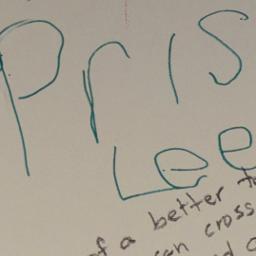 Pris
Lee
of a better
can cross